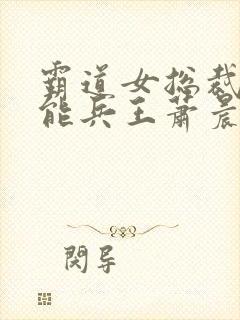 霸道女总裁
能兵王萧晨
閱导